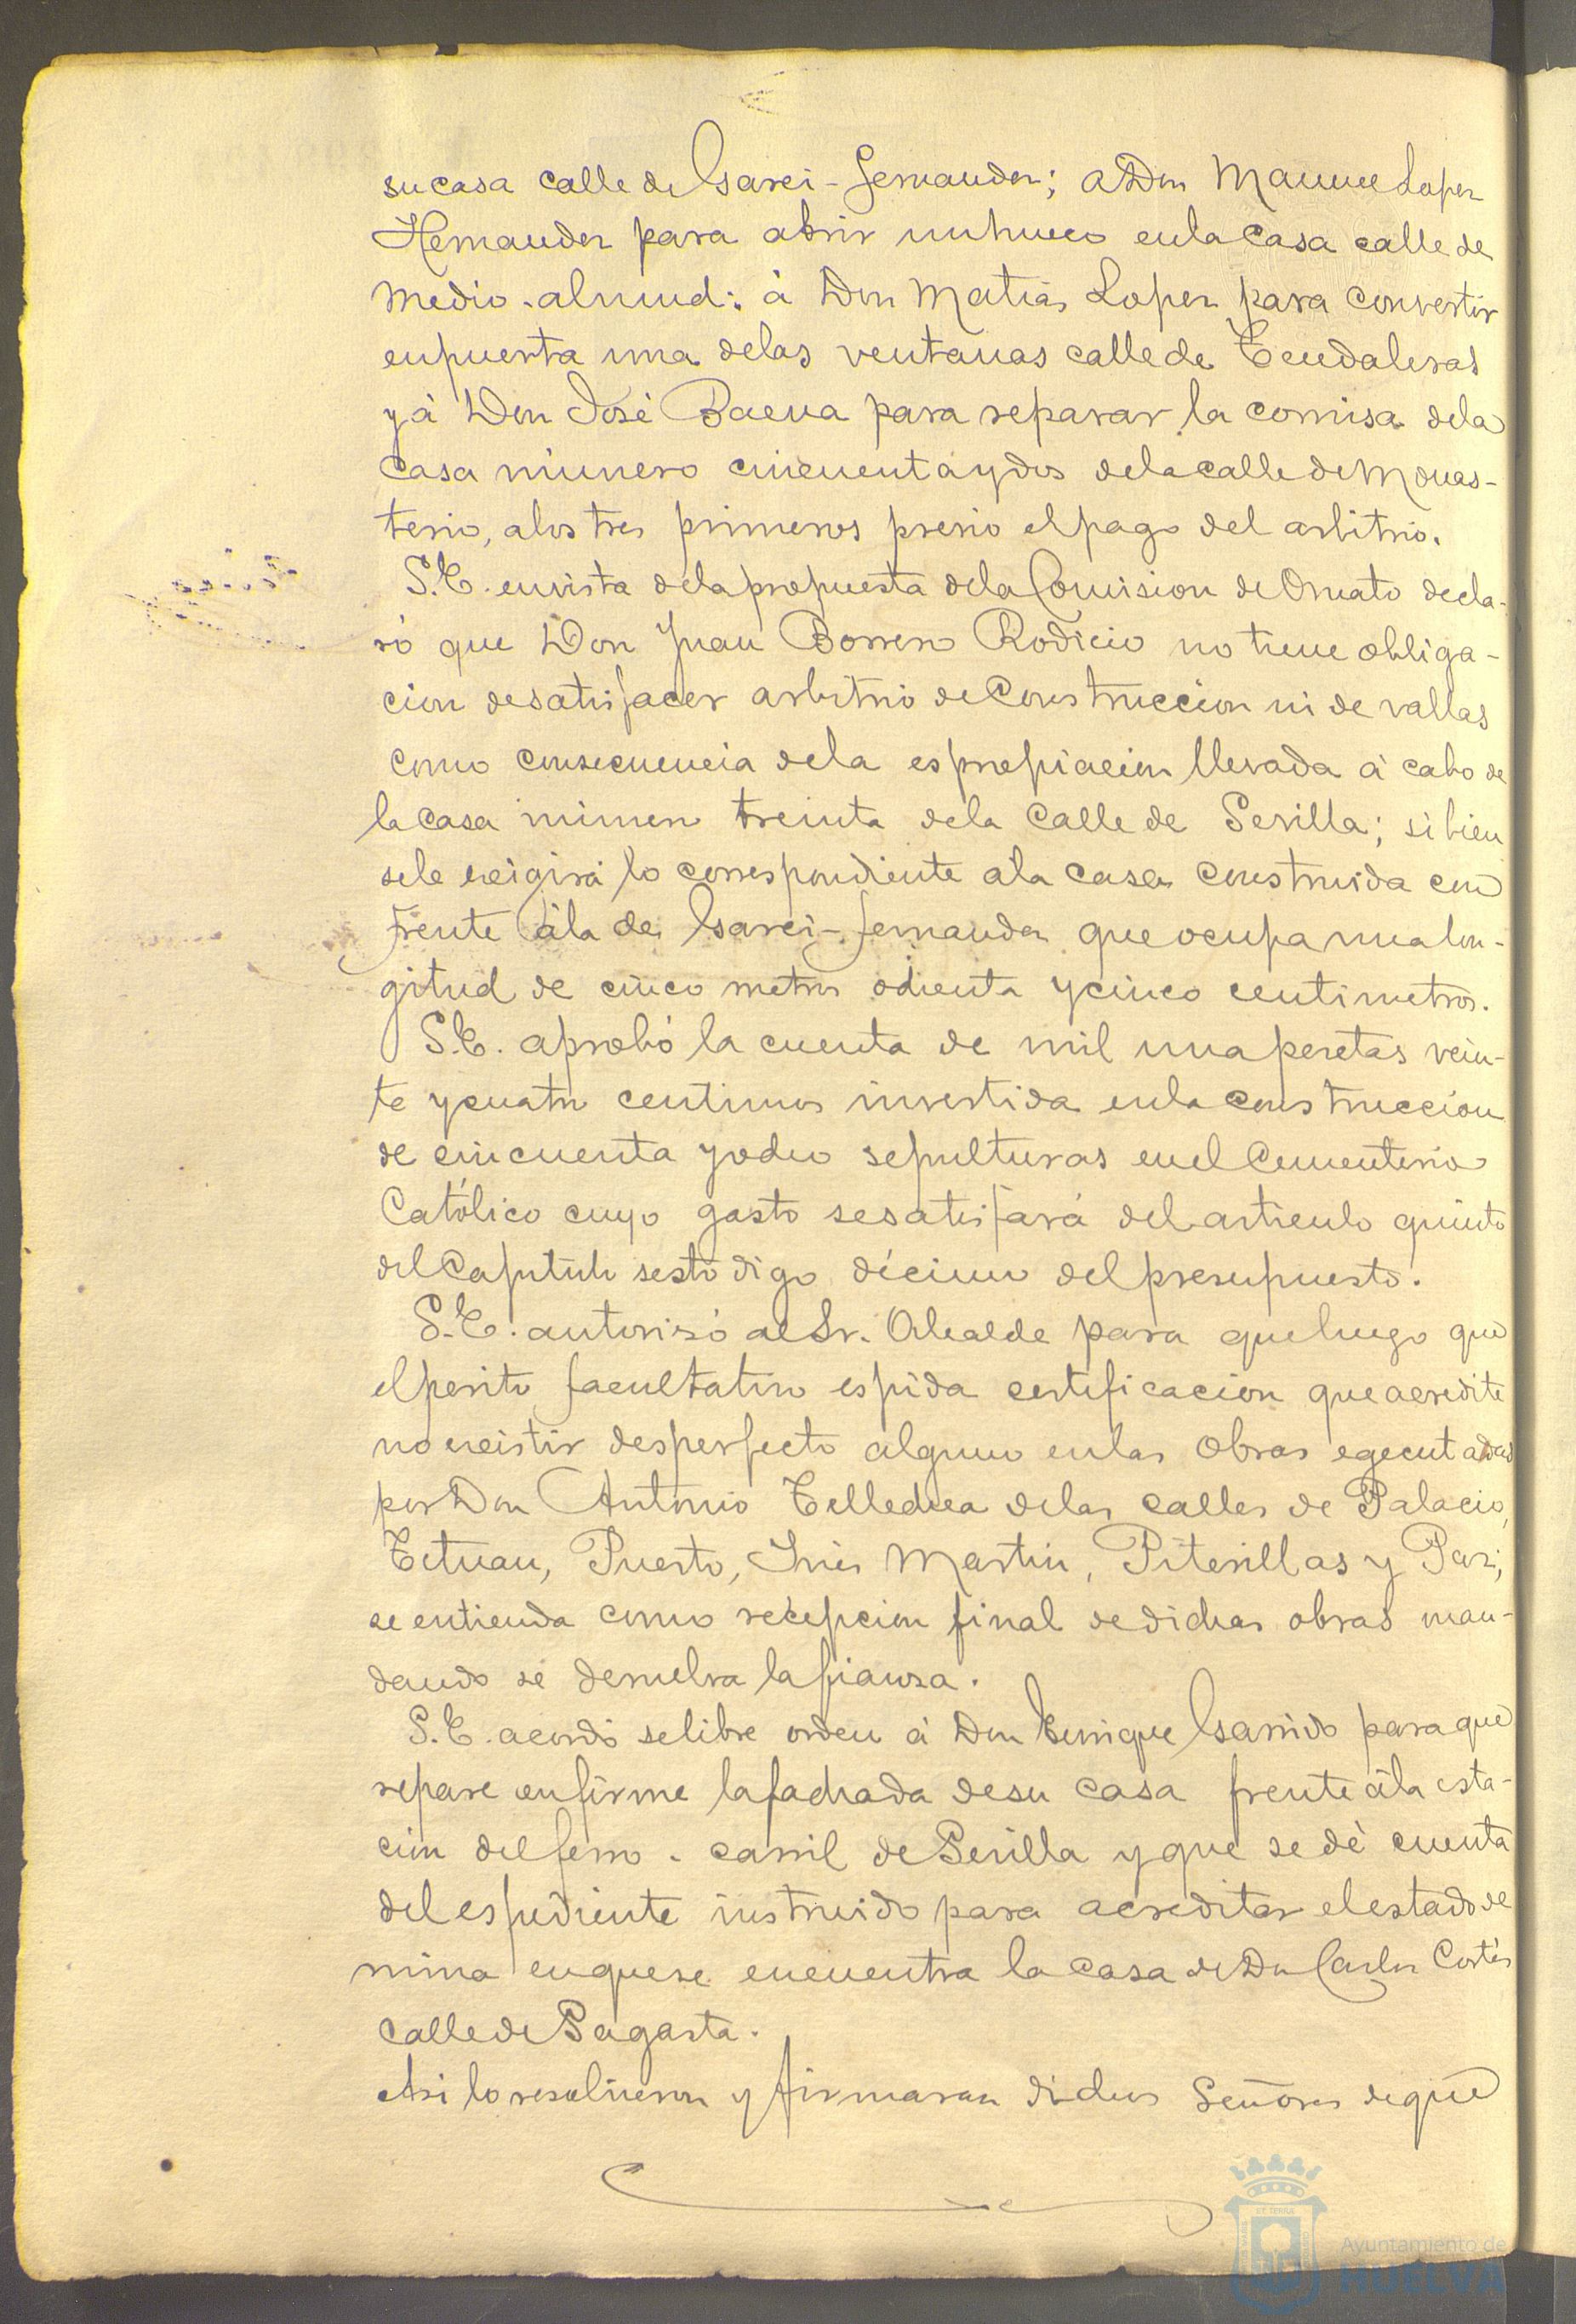 su casa calle de Garci-Fernandez; a Don Manuel Lopez
Hernandez para abrir un hueco en la casa calle de
Medio-almud; à Don Matias Lopez para convertir
en puerta una de las ventanas calle de Tendaleras
y à Don José Baena para reparar la cornisa de la
casa número cincuenta y dos de la calle de Monas-
terio, a los tres primeros previo el pago del arbitrio.
S.E. en vista de la propuesta de la Comision de Ornato decla-
ró que Don Juan Borrero Rodicio no tiene obliga-
cion de satisfacer arbitrio de construccion ni de vallas
como consecuencia de la espropiacion llevada à cabo de
la casa número treinta de la calle de Sevilla; si bien
se le exigirá lo correspondiente a la casa construida con
frente à la de Garci-Fernandez que ocupa una lon-
gitud de cinco metros ochenta y cinco centimetros.
S.E. aprobó la cuenta de mil una pesetas vein-
te y cuatro centimos invertida en la construccion
de cincuenta y ocho sepulturas en el Cementerio
Católico cuyo gasto se satisfará del articulo quinto
del Capitulo sesto digo décimo del presupuesto.
S.E. autorizó al Sr. Alcalde para que luego que
el perito facultativo espida certificacion que acredite
no existir desperfecto alguno en las obras egecutadas
por Don Antonio Tellechea de las calles de Palacio,
Tetuan, Puerto, Inés Martin, Piterillas y Paz;
se entienda como recepcion final de dichas obras man-
dando se devuelva la fianza.
S.E. acordó se libre orden à Don Enrique Garrido para que
repare en firme la fachada de su casa frente à la esta-
cion del ferro-carril de Sevilla y que se dé cuenta
del espediente instruido para acreditar el estado de
ruina en que se encuentra la casa de Don Carlos Cortés
calle de Sagasta.
Asi lo resolvieron y firmaran dichos Señores de que
Ayuntamiento de
HUELVA